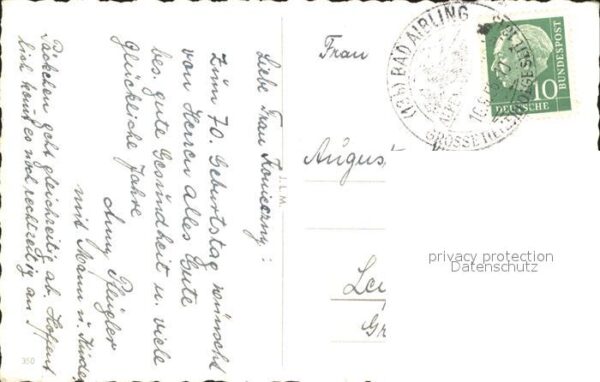 Liebe Frau Konieczny:
Zum 70. Geburtstag wünscht
von Herzen alles Gute
bes. gute Gesundheit u. viele
glückliche Jahre
Anny Pflügler
mit Mann u. Kinder
Päckchen geht gleichzeitig ab. Hoffent
lich kommt es noch rechtzeitig an!
350
J.L.M.
Frau
August
Le
Gr
(13b) BAD AIBLING
DEUTSCHE
BUNDESPOST
10
privacy protection
Datenschutz